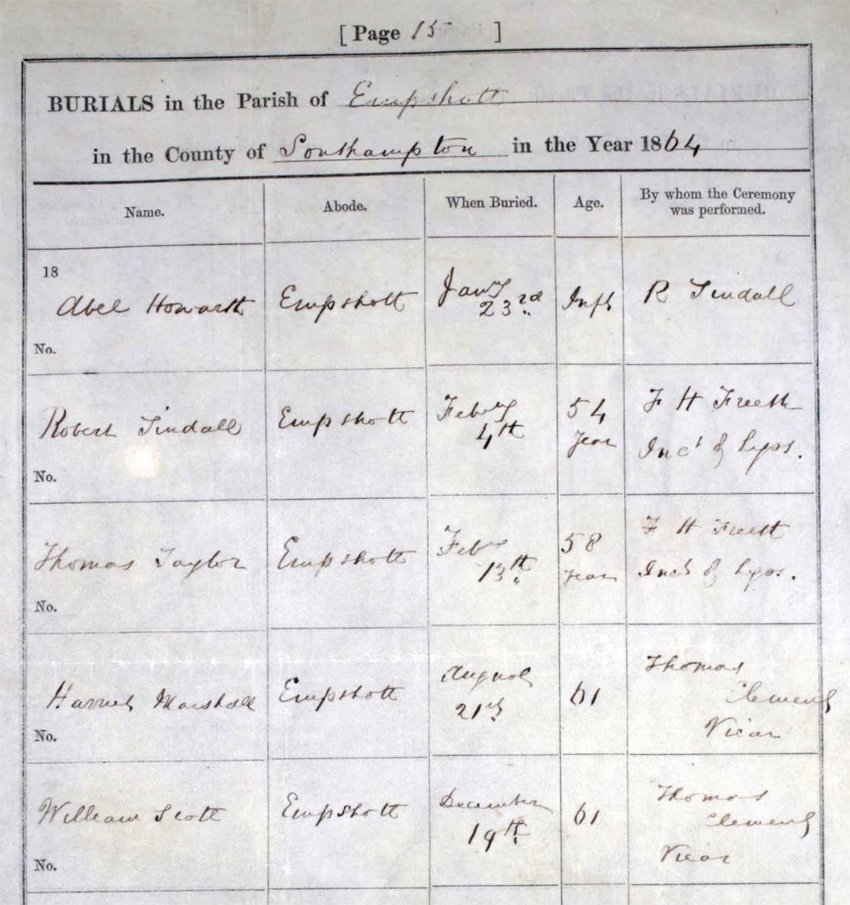 [ Page 15 ]
BURIALS in the Parish of Empshott
in the County of Southampton in the Year 1864
Name. Abode. When Buried. Age. By whom the Ceremony was performed.
18
Abel Howarth Empshott Jany 23rd Inft R Tindall
No.
Robert Tindall Empshott Feby 4th 54 Year F H Freeth Inct of Lyss.
No.
Thomas Taylor Empshott Feby 13th 58 Year F H Freeth Inct of Lyss.
No.
Harriet Marshall Empshott August 21st 61 Thomas Clements Vicar
No.
William Scott Empshott December 19th 61 Thomas Clements Vicar
No.